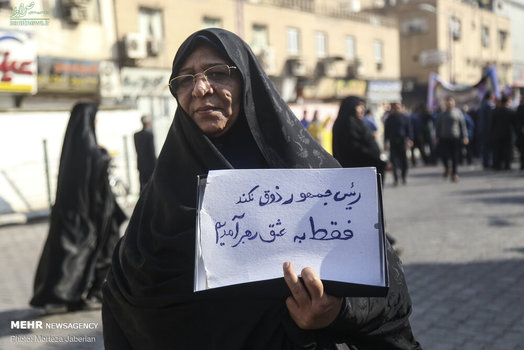 رئیس جمهور ذوق نکند
فقط به عشق رهبر آمدیم
MEHR NEWSAGENCY
Photo: Morteza Jaberian